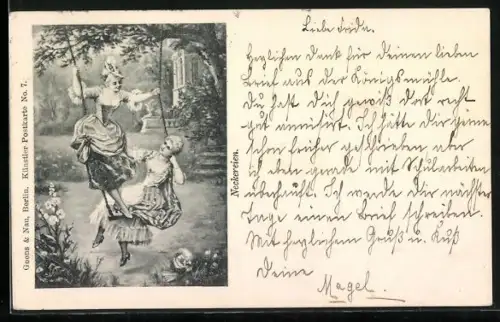 Goens & Nau, Berlin. Künstler Postkarte No. 7.
Neckereien.
Liebe Frida.
Herzlichen Dank für Deinen lieben
Brief aus der Königsmühle.
Du hast Dich gewiß dort recht
gut amüsirt. Ich hätte Dir gerne
schon früher geschrieben, aber
ich bin grade mit Schularbeiten
überhäuft. Ich werde Dir nächster
Tage einen Brief schreiben.
Mit herzlichem Gruß u. Kuß
Deine
Magel.